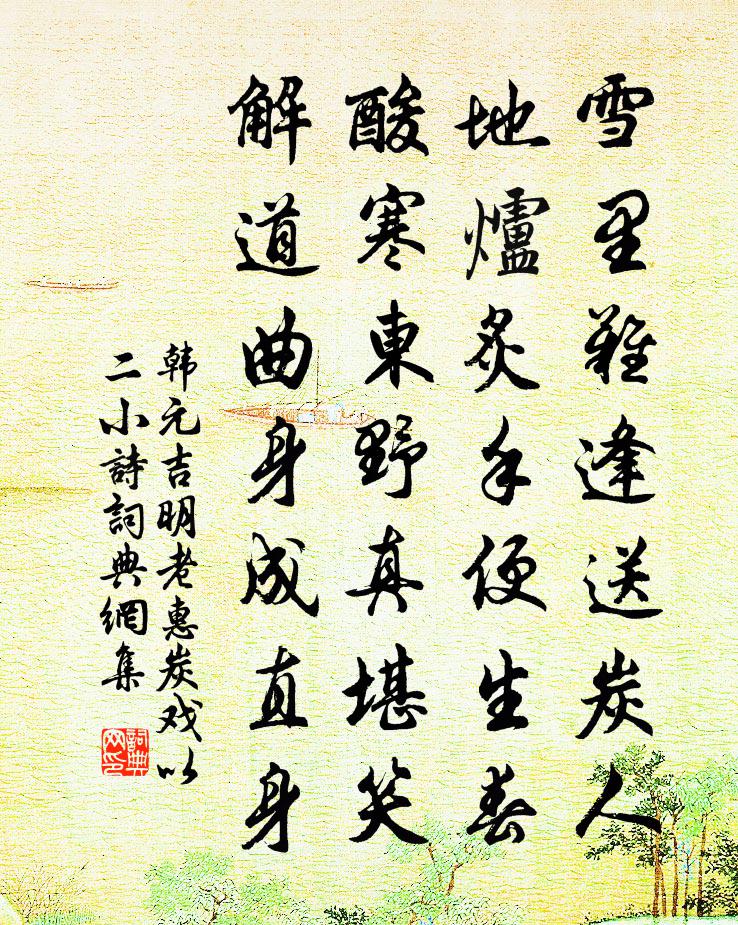 雪里難逢送炭人
地爐炙手便生春
酸寒東野真堪笑
解道曲身成直身
韩元吉明老惠炭戏以
二小詩詞典網集
詞典
网印